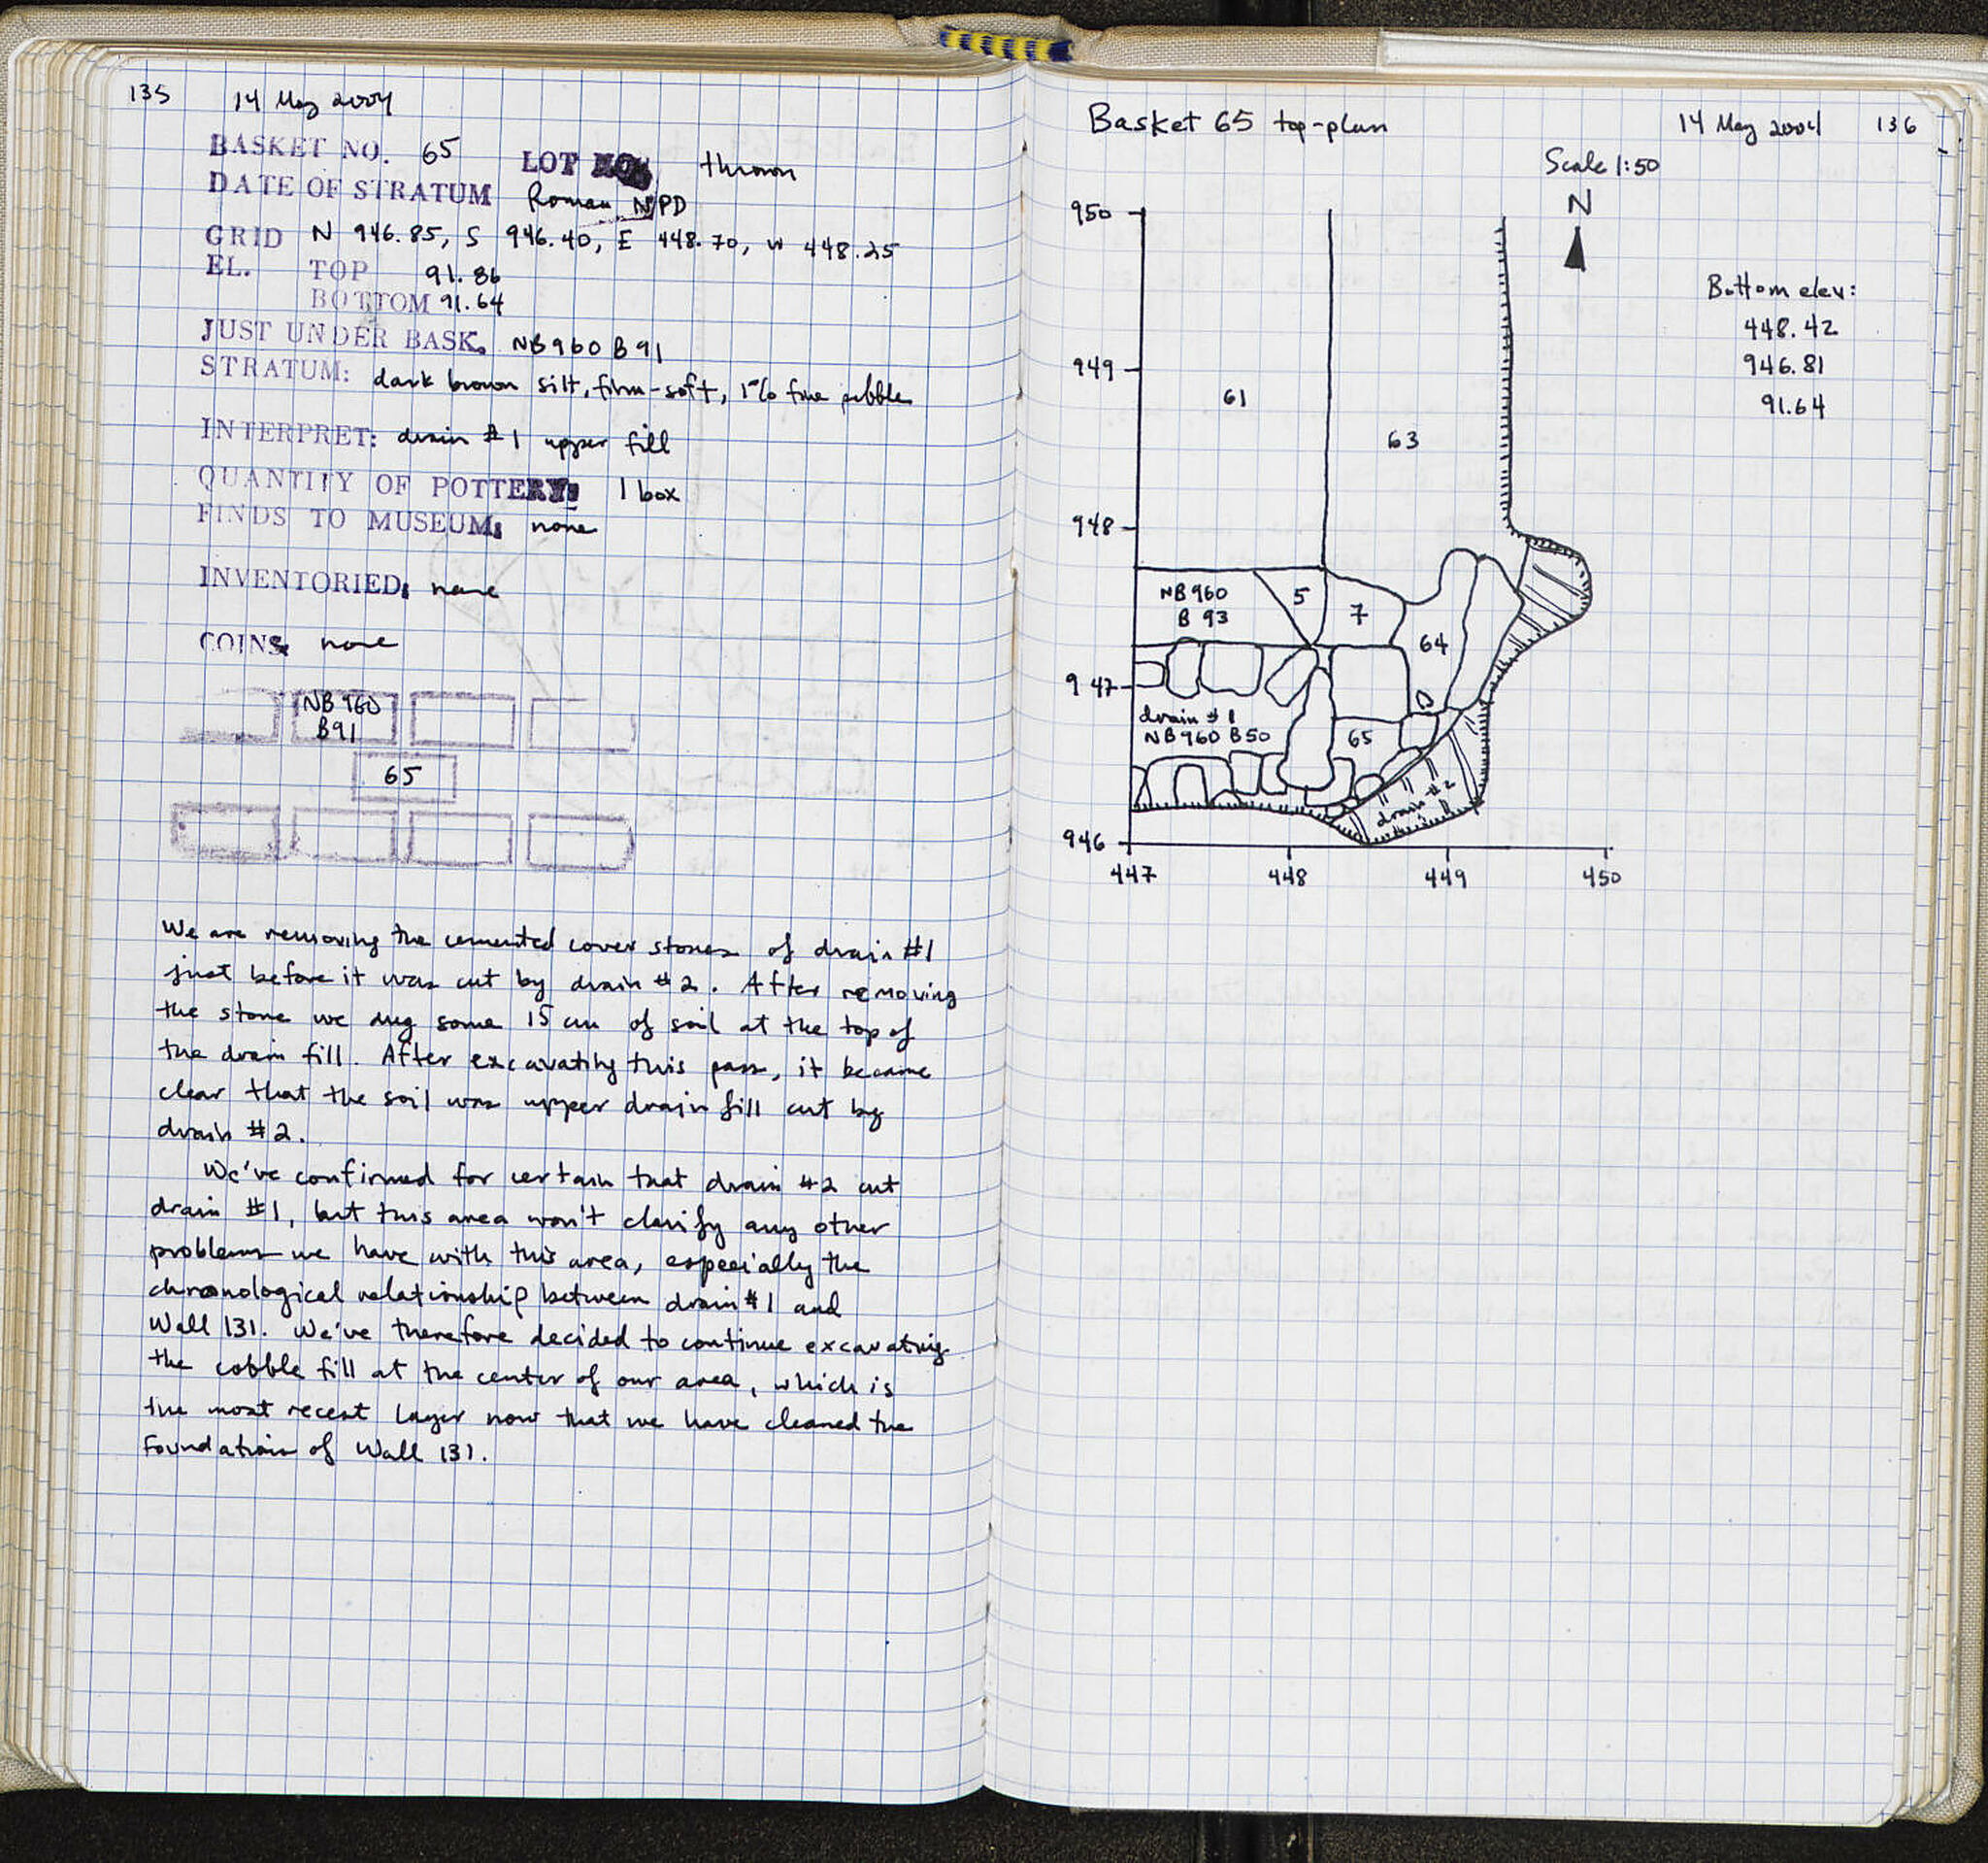 135 14 May 2004
BASKET NO. 65 LOT NO. thrown
DATE OF STRATUM Roman NPD
GRID N 946.85, S 946.40, E 448.70, W 448.25
EL. TOP 91.86
BOTTOM 91.64
JUST UNDER BASK. NB960 B91
STRATUM: dark brown silt, firm-soft, 1% fine pebble
INTERPRET: drain #1 upper fill
QUANTITY OF POTTERY: 1 box
FINDS TO MUSEUM: none
INVENTORIED: none
COINS: none
NB960
B91
65
We are removing the cemented cover stones of drain #1
just before it was cut by drain #2. After removing
the stone we dug some 15 cm of soil at the top of
the drain fill. After excavating this pass, it became
clear that the soil was upper drain fill cut by
drain #2.
We've confirmed for certain that drain #2 cut
drain #1, but this area won't clarify any other
problems we have with this area, especially the
chronological relationship between drain #1 and
Wall 131. We've therefore decided to continue excavating
the cobble fill at the center of our area, which is
the most recent layer now that we have cleaned the
foundation of Wall 131.
Basket 65 top-plan 14 May 2004 136
Scale 1:50
N
950
Bottom elev:
448.42
946.81
91.64
949
61
63
948
NB960
B 93
5
7
64
947
drain #1
NB960 B50
65
drain #2
946
447 448 449 450